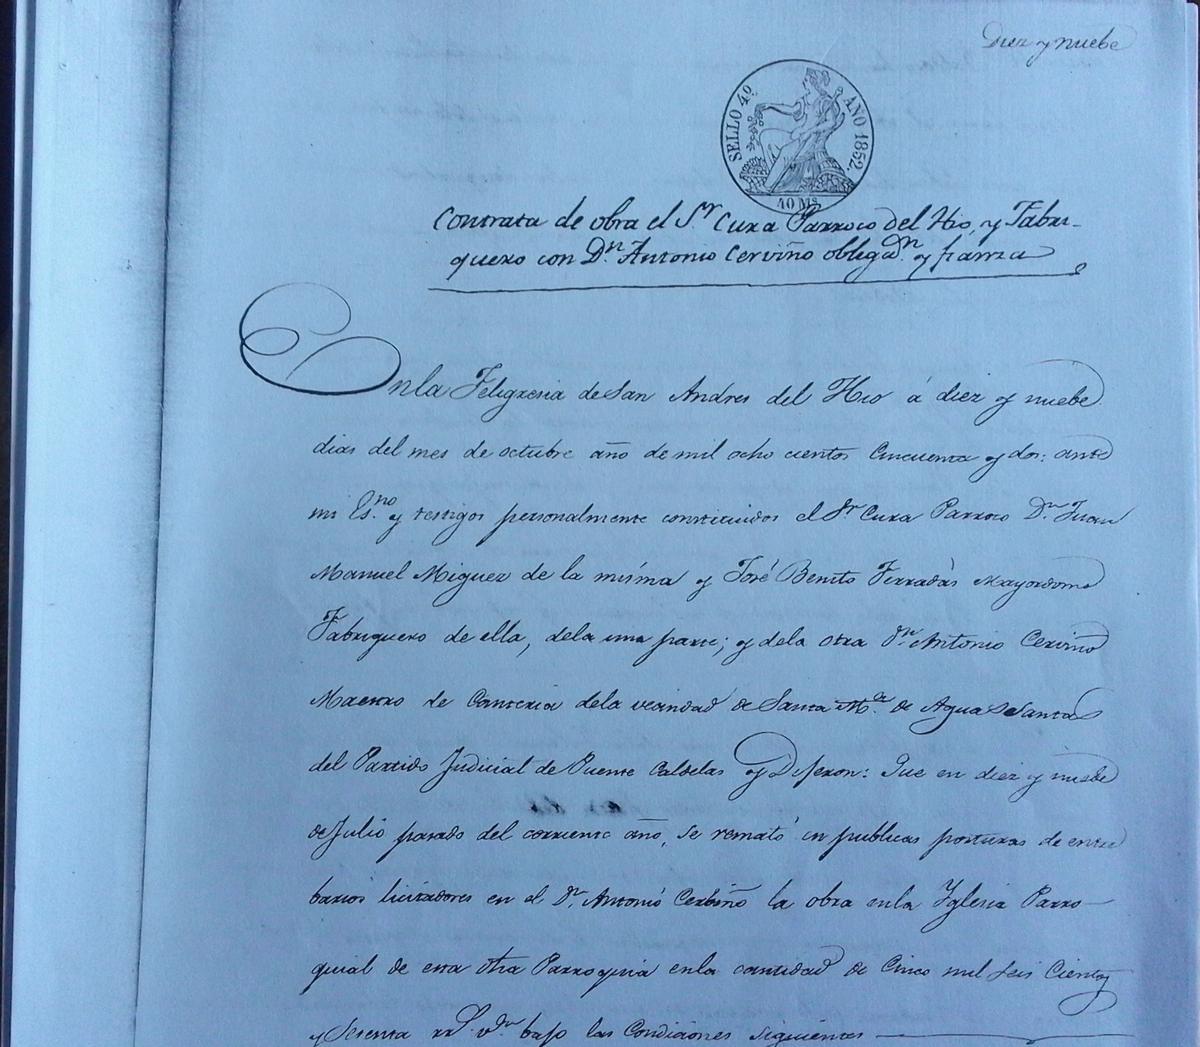 Diez y nuebe
SELLO 4º AÑO 1852
40 Ms
Contrata de obra el Sr. Cura Parroco del Hio, y Fabri-
quero con Dn. Antonio Cerviño obligdn. y fianza
En la Feligresia de San Andres del Hio á diez y nuebe
dias del mes de octubre año de mil ocho cientos Cincuenta y dos: ante
mi Es.no y testigos personalmente constituidos el Sr Cura Parroco Dn. Juan
Manuel Miguez de la misma y José Benito Ferradás Mayordomo
Fabriquero de ella, dela una parte; y dela otra Dn. Antonio Cerviño
Maestro de Canteria dela vecindad de Santa M.a de Aguas Santas
del Partido Judicial de Puente Caldelas y Dijeron: Que en diez y nuebe
de Julio pasado del corriente año, se remató en publicas posturas de entre
barios licitadores en el Dn. Antonio Cerbiño la obra enla Yglesia Parro-
quial de esta dha Parroquia enla cantidad de Cinco mil Seis Cientos
y Sesenta rrs. vdn. bajo las Condiciones siguientes